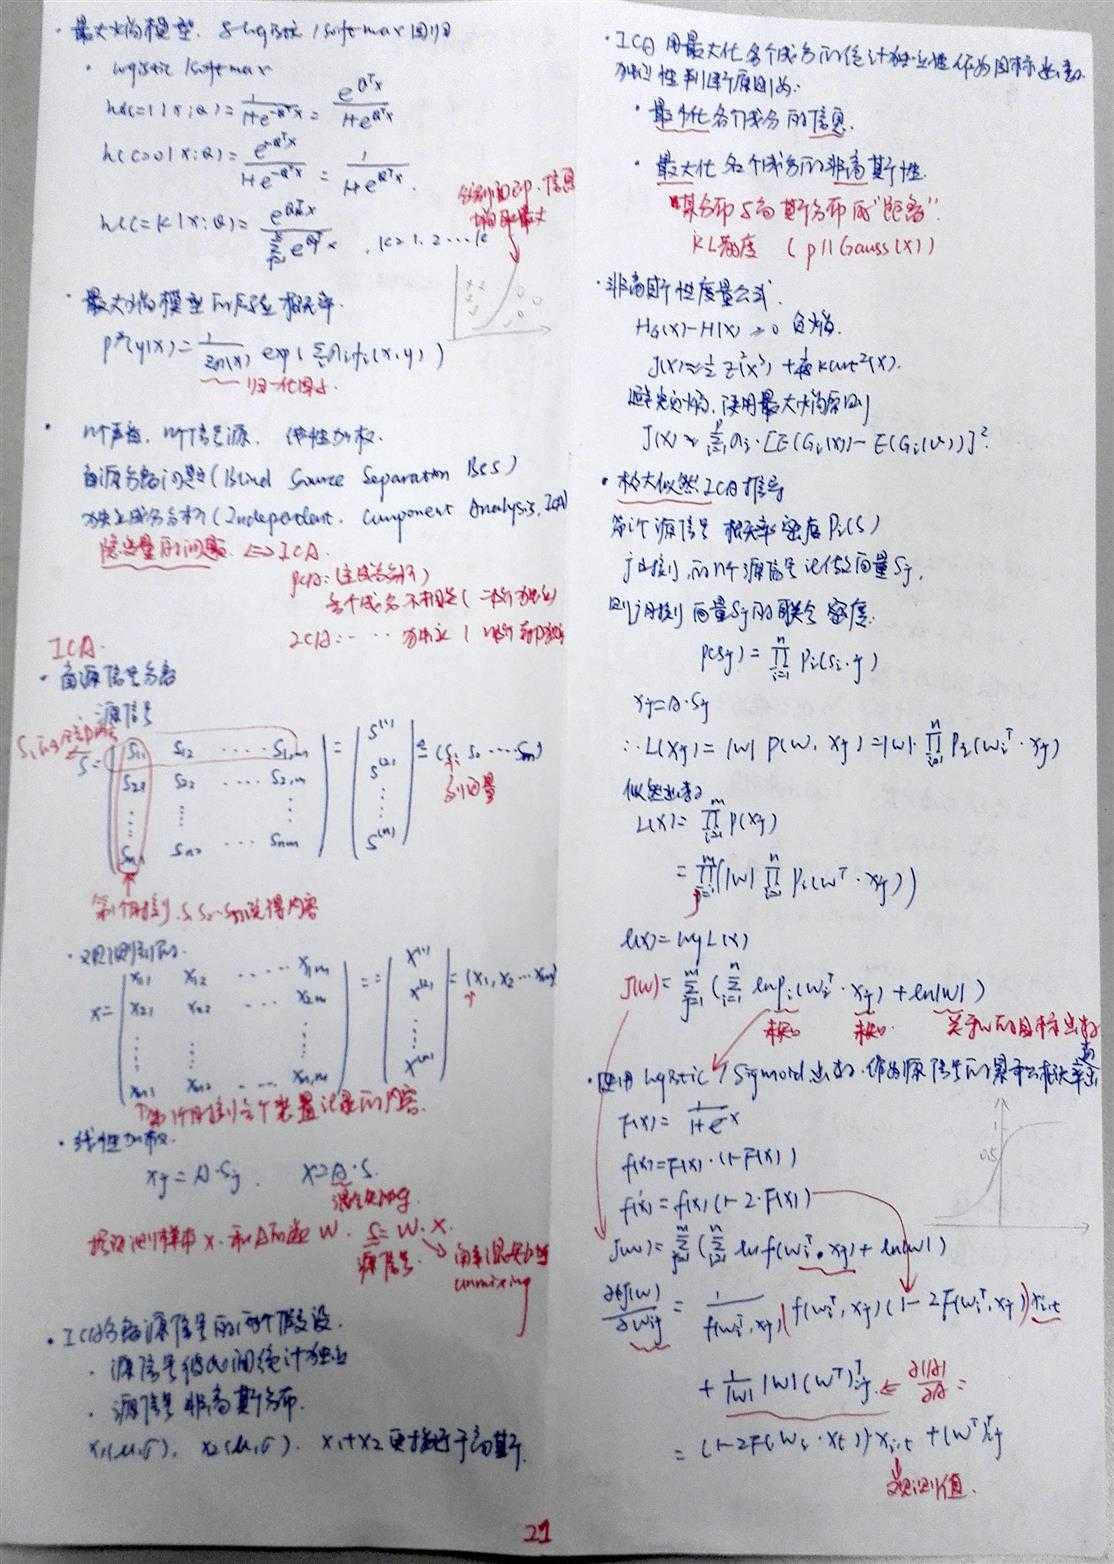 · 最大熵模型. 与logistic / softmax 回归
· logistic / softmax
h(c=1|x;θ) = 1/(1+e^{-θ^T x}) = e^{θ^T x}/(1+e^{θ^T x})
h(c=0|x;θ) = e^{-θ^T x}/(1+e^{-θ^T x}) = 1/(1+e^{θ^T x}).
h(c=k|x;θ) = e^{θ_k^T x}/Σ e^{θ^T x} , k=1, 2 ... k
· 最大熵模型的后验概率.
p*(y|x) = 1/Z_λ(x) exp( Σ λ_i f_i(x,y) )
归一化因子.
· n个声音, n个信号源. 线性加权.
盲源分离问题(Blind Source Separation BSS)
独立成分分析(Independent. Component Analysis, ICA)
隐变量的问题. <=> ICA.
PCA: (主成分分析)
各个成分不相关(二阶独立)
ICA: - ·· 独立
ICA.
· 盲源信号分离
源信号
S = ( S11 S12 ····· S1,m
S21 S22 ··· S2,m
Sn1 Sn2 ··· Snm ) = ( S^(1) S^(2) ⋮ S^(n) ) = (S1 S2 ····· Sm)
列向量
第1个时刻, S1 S2··Sn说得内容
· 观测到的.
X = ( X11 X12 ····· X1m
X21 X22 ··· X2m
Xn1 Xn2 ··· Xn,m ) = ( X^(1) X^(2) ⋮ X^(n) ) = (X1, X2 ··· Xm)
第1个时刻各个装置记录的内容.
· 线性加权.
Xj = A·Sj . X = A·S.
混合矩阵.
S = W·X.
源信号
unmixing
· ICA分离源信号的两个假设.
· 源信号彼此间统计独立
· 源信号非高斯分布.
x1(μ,σ), x2(μ,σ). x1+x2 更接近于高斯.
· ICA 用最大化各个成分的统计独立性作为目标函数.
独立性判断原则为.
· 最小化各个成分的信息.
· 最大化各个成分的非高斯性.
"某分布与高斯分布的"距离".
KL散度 (p||Gauss(x))
· 非高斯性度量公式.
H_G(x) - H(x) ≥ 0 负熵.
使用最大熵原则
J(x) ≈ Σ a_i · [E(G_i(x)) - E(G_i(v))]².
· 极大似然ICA推导
第i个源信号 概率密度 Pi(S)
j时刻, 的n个源信号记做向量Sj,
则j时刻 向量Sj的联合密度.
P(Sj) = ∏_{i=1}^n Pi(Si,j)
Xj = A·Sj
∴ L(Xj) = |W| P(W·Xj) = |W|· ∏_{i=1}^n Pi(Wi^T·Xj)
似然函数
L(X) = ∏^m P(Xj)
= ∏_{j=1}^m (|W| ∏_{i=1}^n Pi(W^T·Xj))
l(X) = log L(X)
J(W) = Σ_{j=1}^m ( Σ_{i=1}^n ln Pi(Wi^T·Xj) + ln|W| )
未知 未知. 关于W的目标函数
· 使用 Logistic / Sigmoid 函数. 作为源信号的累积概率函数
F(x) = 1/(1+e^{-x})
f(x) = F(x)·(1-F(x))
f'(x) = f(x)(1-2·F(x))
1
0.5
J(W) = Σ_{j=1}^m ( Σ_{i=1}^n ln f(Wi^T·Xj) + ln|W| )
∂J(W)/∂Wij = 1/f(Wi^T,Xj) f(Wi^T,Xj)(1-2F(Wi^T,Xj)) Xi,t
+ 1/|W| |W| (W^T)^T ij <= ∂|A|/∂A =
= (1-2F(Wi·Xt)) Xi,t + (W^T)ij
观测值.
21